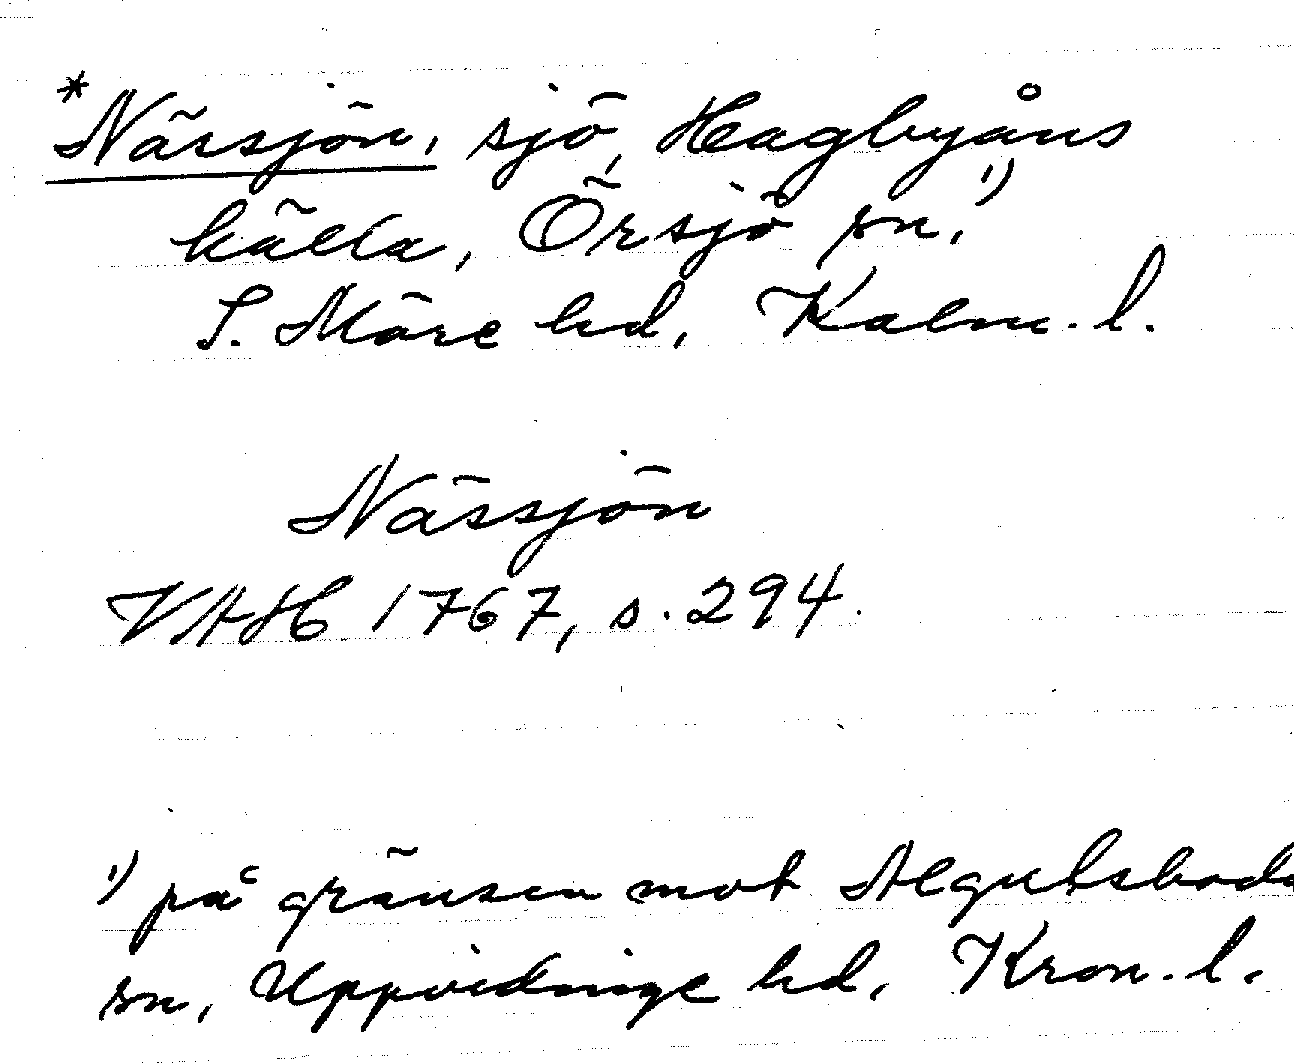 *Närsjön, sjö, Hagbyåns
källa, Örsjö sn,¹⁾
S. Möre hd, Kalm. l.
Nässjön
VAH 1767, s. 294.
¹⁾ på gränsen mot Algutsboda
sn, Uppvidinge hd, Kron. l.